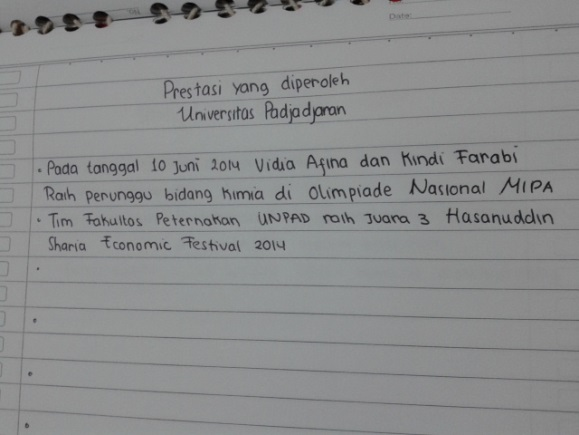 Date:
Prestasi yang diperoleh
Universitas Padjadjaran
• Pada tanggal 10 Juni 2014 Vidia Afina dan Kindi Farabi
Raih perunggu bidang kimia di Olimpiade Nasional MIPA
• Tim Fakultas Peternakan UNPAD raih Juara 3 Hasanuddin
Sharia Economic Festival 2014
•
•
•
•